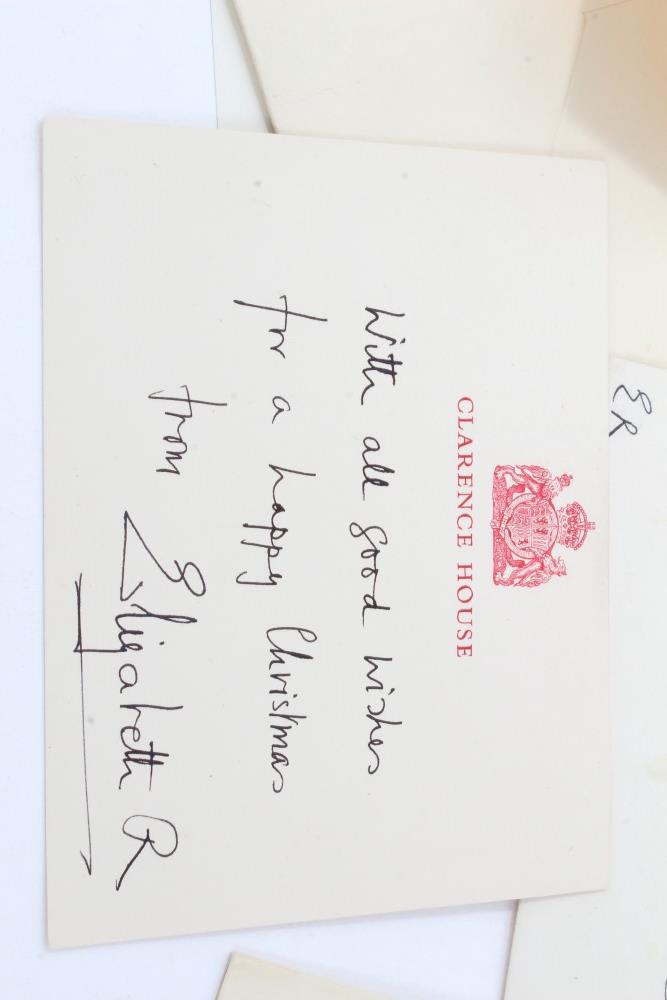 CLARENCE HOUSE
With all good wishes
for a happy Christmas
from
Elizabeth R
ER